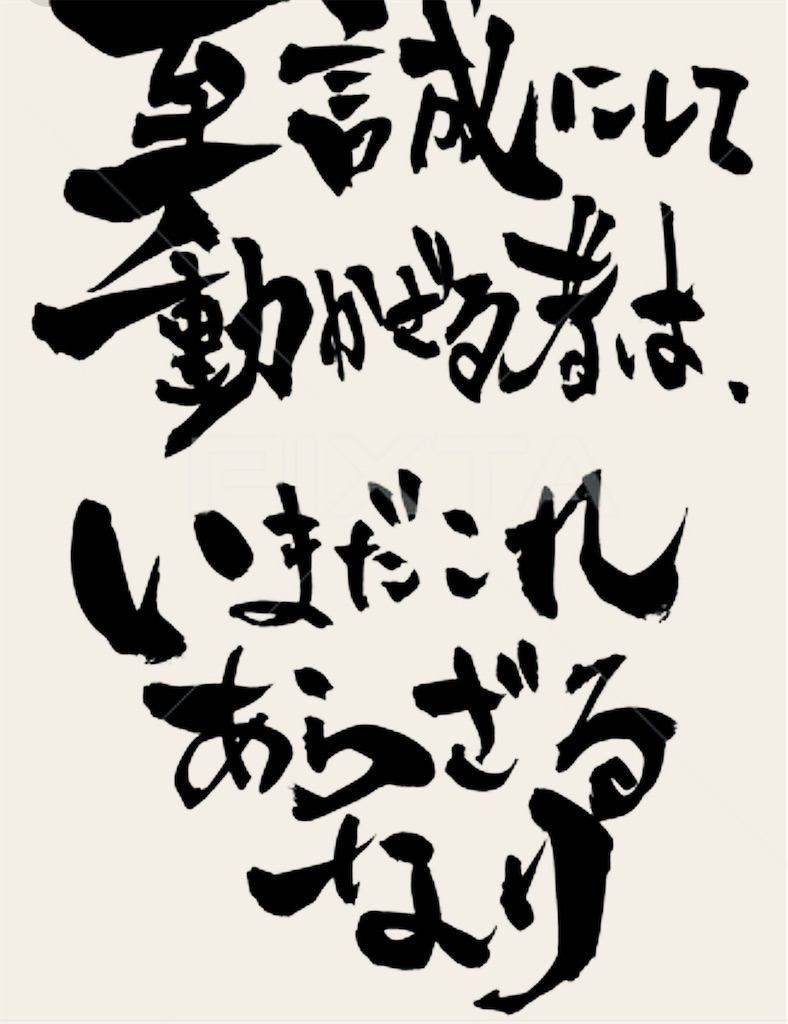 至誠にして
動かざる者は、
いまだこれ
あらざる
なり
PIXTA